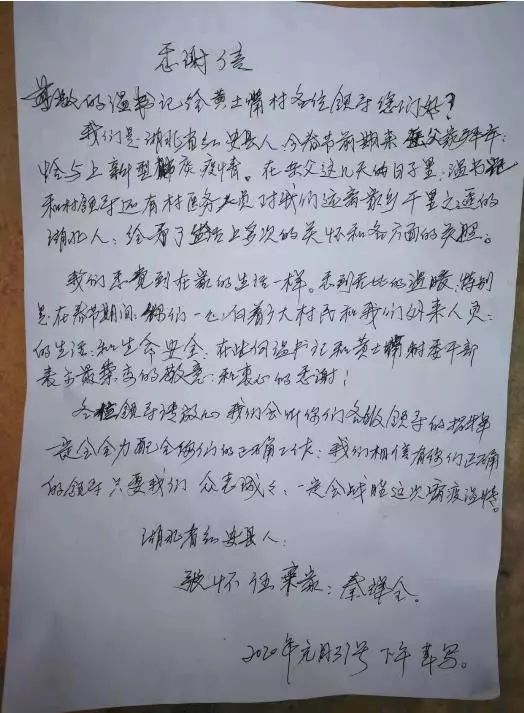 感谢信
尊敬的温书记给黄土嘴村各位领导您们好?
我们是湖北省红安县人。今春节前期来岳父家拜年:
恰与上新型肺疫疫情。在岳父这几天的日子里:温书记
和村领导还有村医务人员对我们远离家乡千里之遥的
湖北人:给有了生活上多次的关怀和各方面的关照。
我们感觉到在家的生活一样。感到无比的温暖,特别
是在春节期间:你们一心向着广大村民和我们外来人员:
的生活:和生命安全:在此向温书记和黄土嘴村委干部
表示最崇高的敬意:和衷心的感谢!
各位领导请放心我们会听你们各级领导的指挥
一定会全力配合你们的正确工作:我们相信有你们正确
的领导只要我们 众志城城:一定会战胜这次病疫温情。
湖北省红安县人:
张怀 家:秦 全。
2020年元月31号 下午 写。